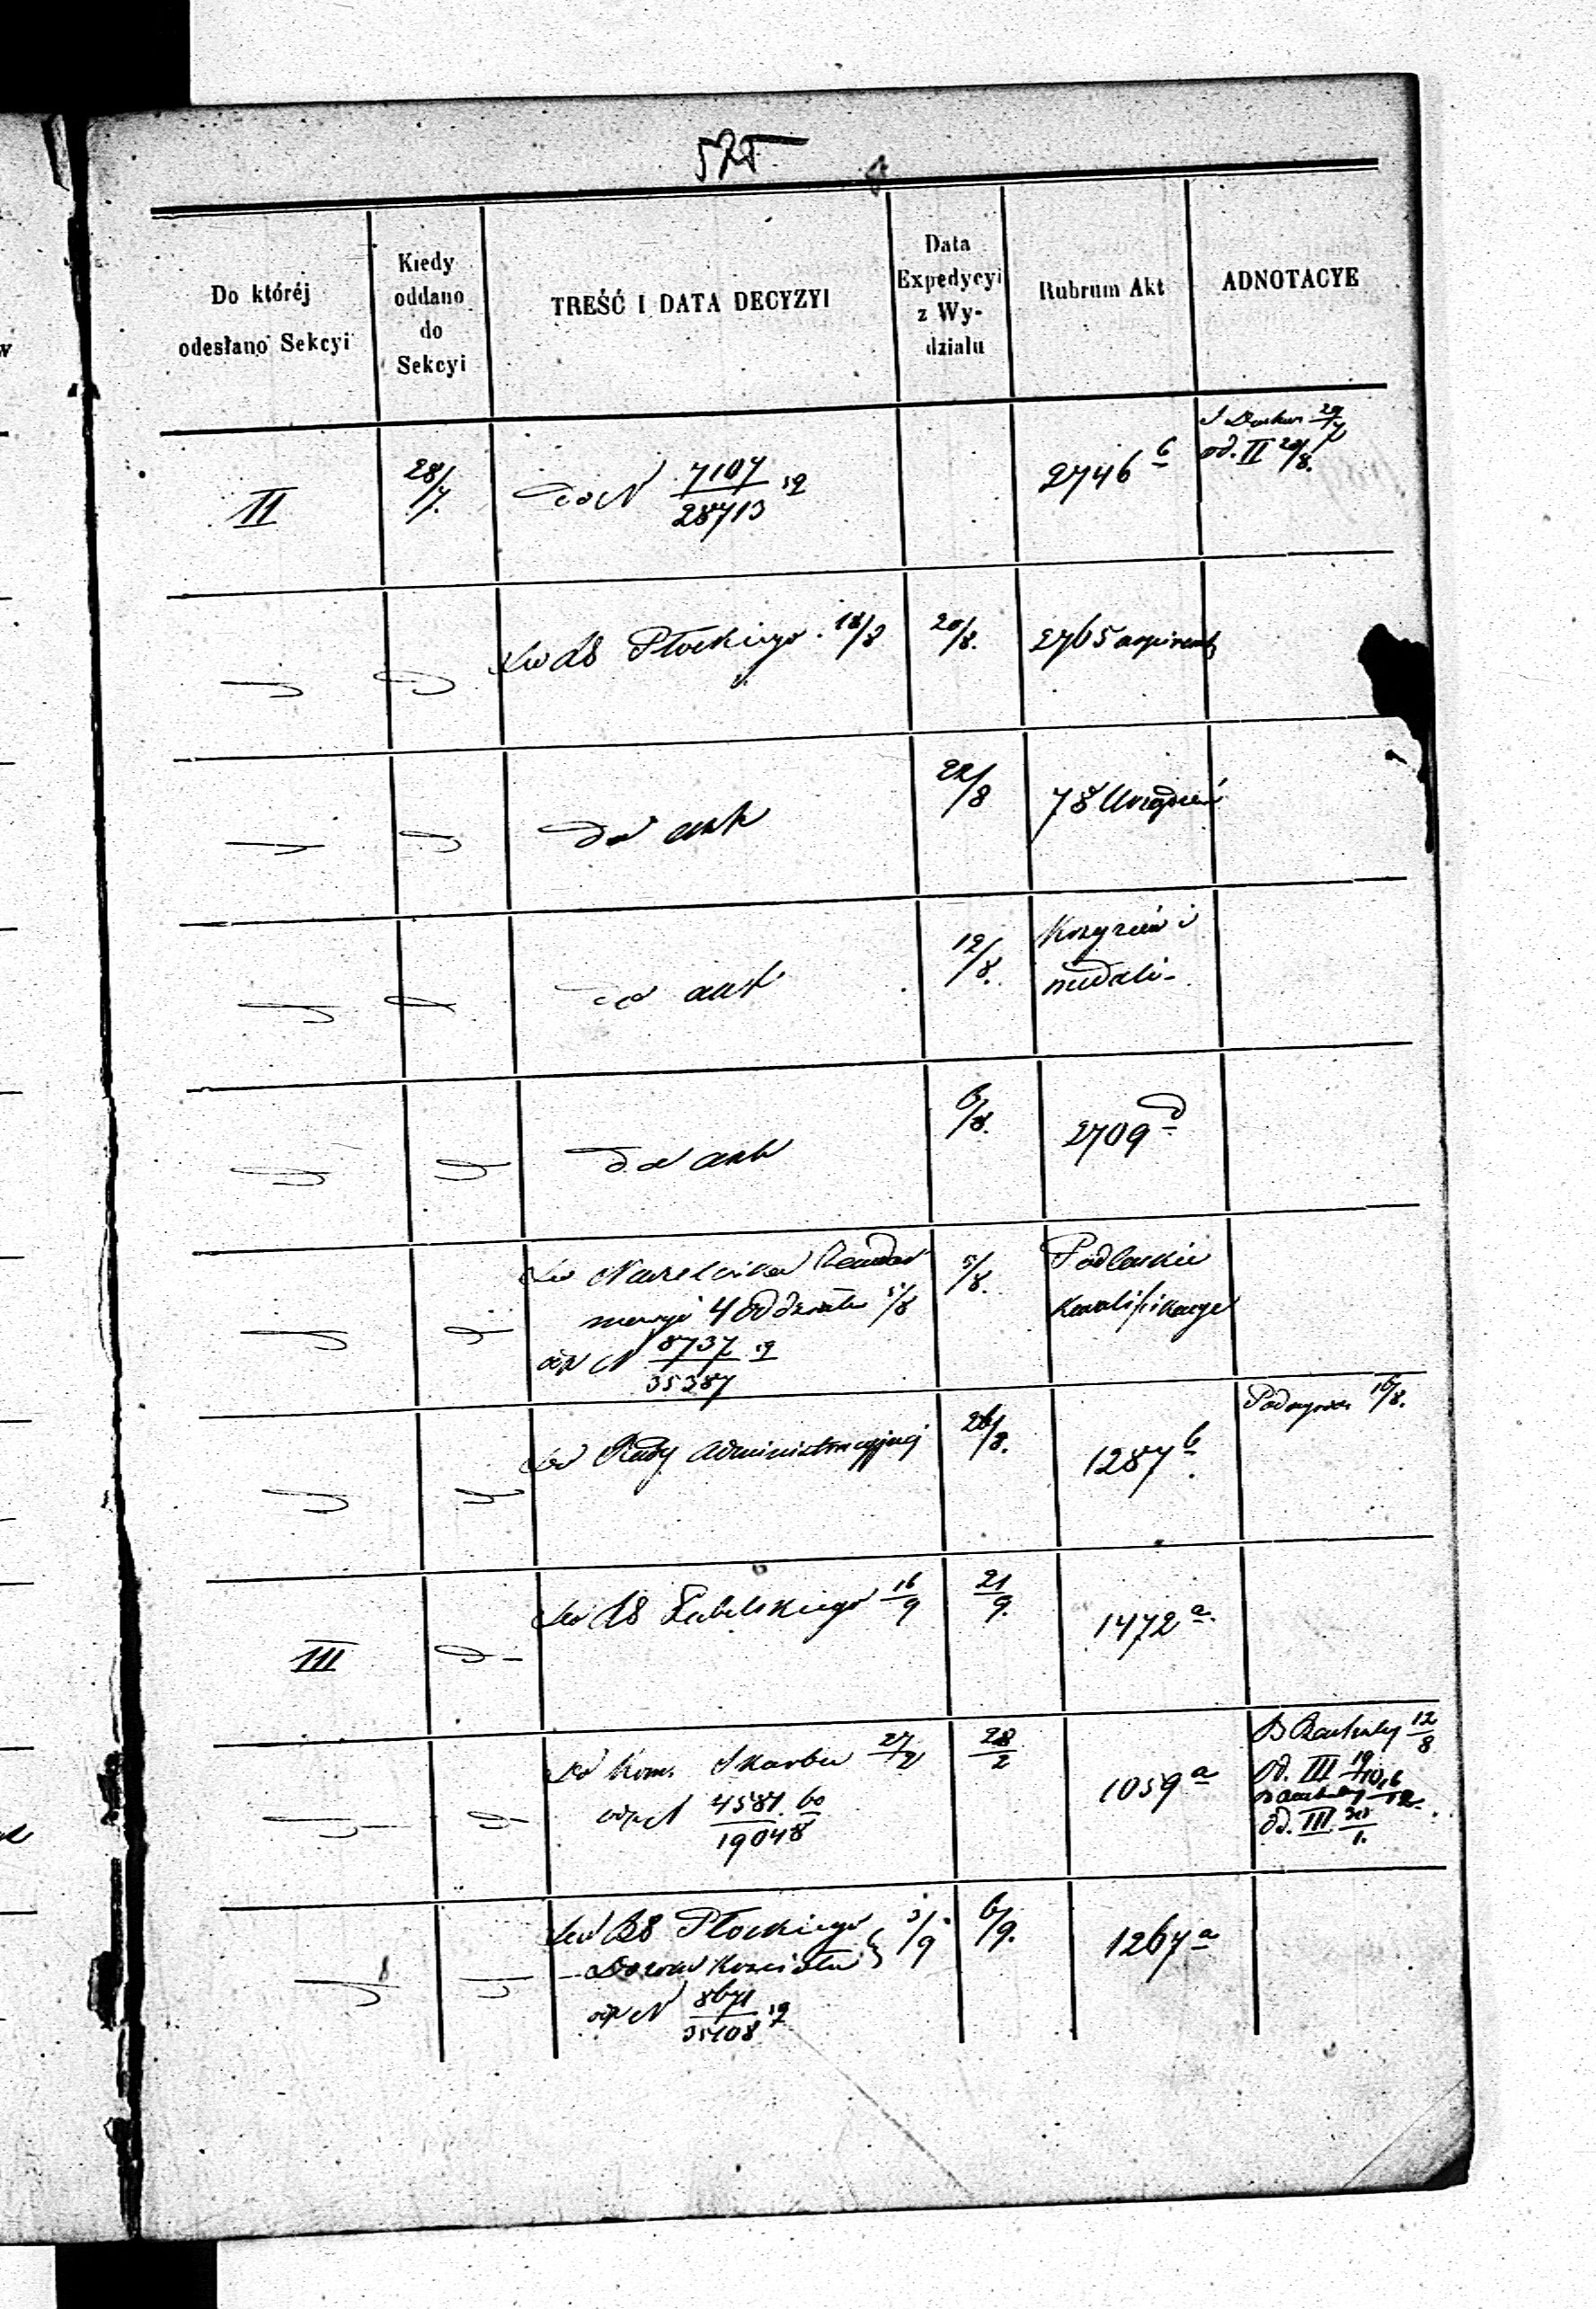 575
Do któréj
odesłano Sekcyi
Kiedy
oddano
do
Sekcyi
TREŚĆ I DATA DECYZYI
Data
Expedycyi
z Wy-
działu
Rubrum Akt
ADNOTACYE
II
28/7.
do N 7107/28713 19
2746 b
29/7
od. II 20/8.
do RG Płockiego 18/8
20/8.
2765 aspirant
do akt
22/8
78 Urządzeń
do akt
12/8.
i
medali
do akt
6/8.
2709 d
do Naczelnika
4 Oddziału 5/8
odp N 8737/35387 19
5/8.
Podlaskie
kwalifikacye
do Rady Administracyjnej
26/8.
1287 b
16/8.
III
do RG Lubelskiego 16/9
21/9.
1472 a.
do Kom. Skarbu 27/2
odp N 4581/19048 60
28/2
1059 a
12/8
od. III 19/10
od. III
do RG Płockiego
Dozoru Kościoła 3/9
odp N 8671/35108 19
6/9.
1267 a